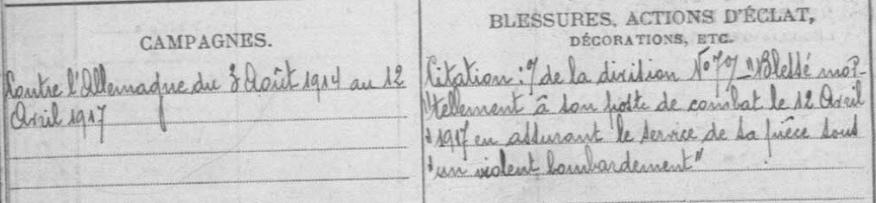 CAMPAGNES.
Contre l'Allemagne du 3 Août 1914 au 12
Avril 1917
BLESSURES, ACTIONS D'ÉCLAT,
DÉCORATIONS, ETC.
Citation: de la division No 79 "Blessé mor-
"tellement à son poste de combat le 12 Avril
"1917 en assurant le service de sa pièce sous
"un violent bombardement"